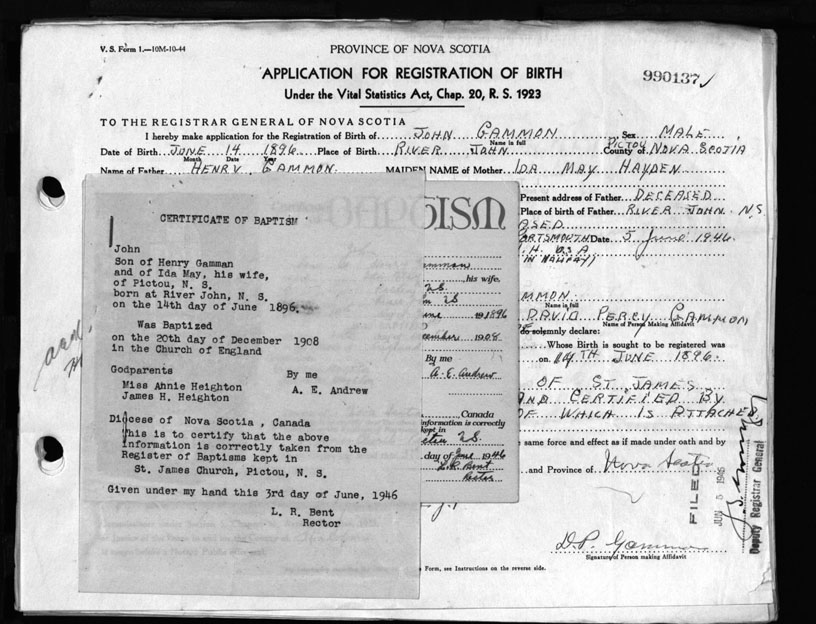 V. S. Form 1.—10M-10-44
PROVINCE OF NOVA SCOTIA
990137
APPLICATION FOR REGISTRATION OF BIRTH
Under the Vital Statistics Act, Chap. 20, R. S. 1923
TO THE REGISTRAR GENERAL OF NOVA SCOTIA
I hereby make application for the Registration of Birth of JOHN GAMMON Sex MALE
Name in full
Date of Birth JUNE 14 1896 Place of Birth RIVER JOHN County of PICTOU NOVA SCOTIA
Month Date Year
Name of Father HENRY GAMMON MAIDEN NAME of Mother IDA MAY HAYDEN
Present address of Father DECEASED
Place of birth of Father RIVER JOHN N.S.
ASED
ORTSMOUTH Date 5 June 1946
N.H. USA
IN HALIFAX)
MMON
Name in full
DAVID PERCY GAMMON,
Name of Person Making Affidavit
do solemnly declare:
Whose Birth is sought to be registered was
on 14TH JUNE 1896.
OF ST. JAMES
AND CERTIFIED BY
OF WHICH IS ATTACHED
same force and effect as if made under oath and by
and Province of Nova Scotia
FILED
JUN 5 1946
Deputy Registrar General
D.P. Gammon
Signature of Person making Affidavit
Form, see Instructions on the reverse side.
CERTIFICATE OF BAPTISM
John
Son of Henry Gamman
and of Ida May, his wife,
of Pictou, N. S.
born at River John, N. S.
on the 14th day of June 1896.
Was Baptized
on the 20th day of December 1908
in the Church of England
Godparents By me
Miss Annie Heighton A. E. Andrew
James H. Heighton
Diocese of Nova Scotia, Canada
This is to certify that the above
information is correctly taken from the
Register of Baptisms kept in
St. James Church, Pictou, N. S.
Given under my hand this 3rd day of June, 1946
L. R. Bent
Rector
TISM
amman
, his wife,
NS
NS
une 1896
ecember 1908
By me
A. E. Andrew
, Canada
information is correctly
kept in
NS
day of June 1946
L.R. Bent
Rector